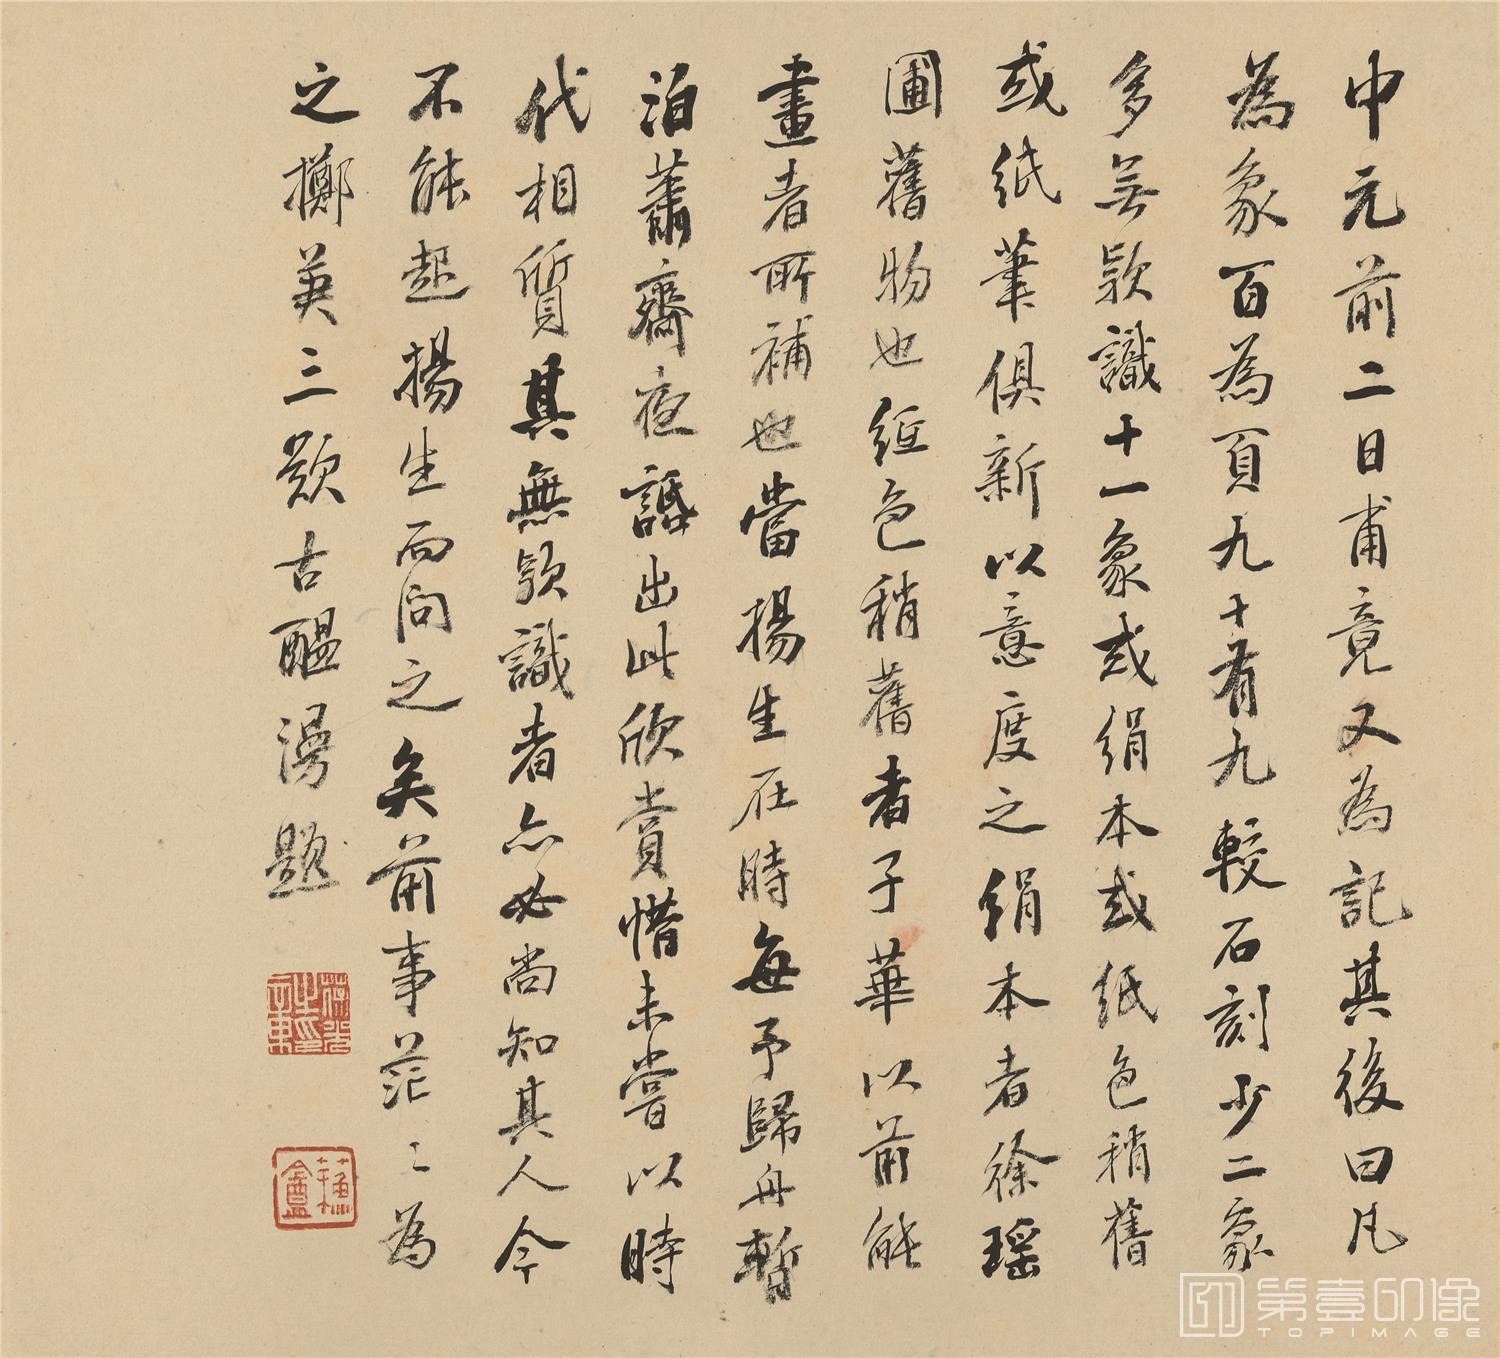 中元前二日甫竟又為記其後曰凡
為象百為頁九十有九較石刻少二象
多無款識十一象或絹本或紙色稍舊
或紙筆俱新以意度之絹本者徐瑤
圃舊物也紙色稍舊者子華以前能
畫者所補也當楊生在時每予歸舟暫
泊蕭齋夜話出此欣賞惜未嘗以時
代相質其無款識者亦必尚知其人今
不能起楊生而問之矣前事茫〻為
之擲筆三歎古醞漫題
第壹印像
TOPIMAGE